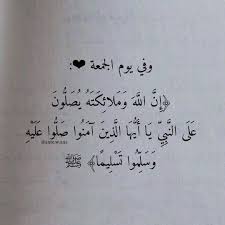 وفي يوم الجمعة ❤:
﴿إِنَّ اللَّهَ وَمَلَائِكَتَهُ يُصَلُّونَ
عَلَى النَّبِيِّ يَا أَيُّهَا الَّذِينَ آمَنُوا صَلُّوا عَلَيْهِ
وَسَلِّمُوا تَسْلِيمًا﴾ ﷺ